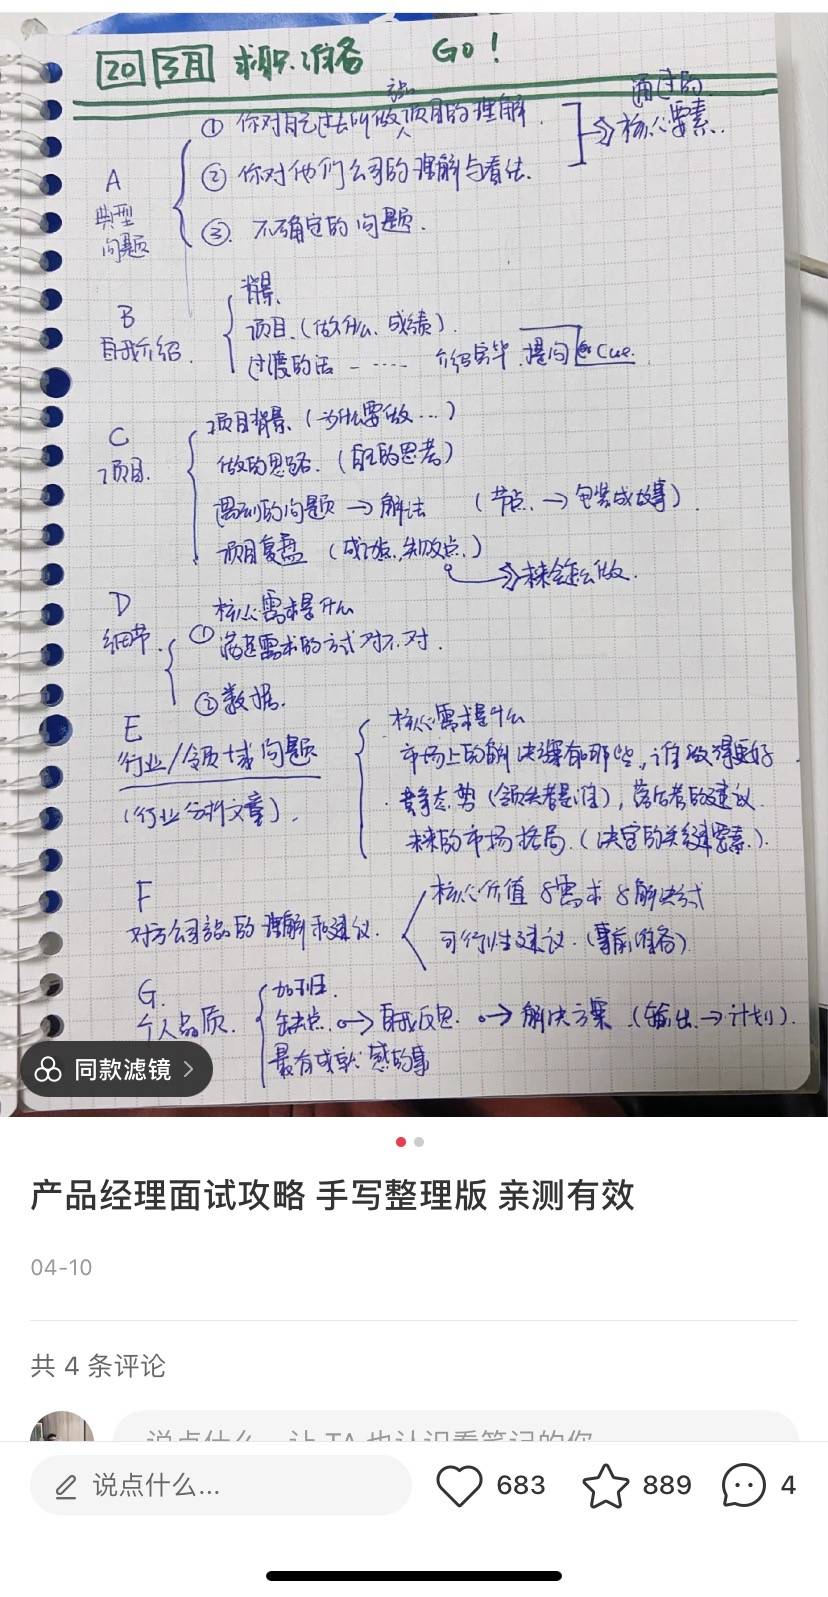 20 3月 求职准备 GO!
通过的
① 你对自己过去所做产品项目的理解. 核心要素..
② 你对他们公司的理解与看法.
A
典型
问题
③. 不确定的问题.
背景、
B
自我介绍.
项目、(做什么、成绩).
过渡的话 - - ···· 介绍完毕. 提问 Cue.
项目背景、(为什么要做...)
C
项目.
做的思路. (自己的思考)
遇到的问题 → 解法 (节点. → 包装成故事).
项目复盘 (成功点,失败点.)
未来会怎么做.
D
细节.
核心需求是什么
① 满足需求的方式对不对.
② 数据.
E
行业/领域问题
(行业分析文章).
核心需求是什么
市场上的解决方案有哪些,谁做得更好
竞争态势(领先者是谁),落后者的建议.
未来的市场格局.(决定的关键要素.).
F
对方公司产品的理解和建议.
核心价值 & 需求 & 解决方式
可行性建议.(事前准备)
G.
个人品质.
加班.
缺点. → 自我反思. → 解决方案 (输出 → 计划).
最有成就感的事
同款滤镜 >
产品经理面试攻略 手写整理版 亲测有效
04-10
共 4 条评论
说点什么... 683 889 4